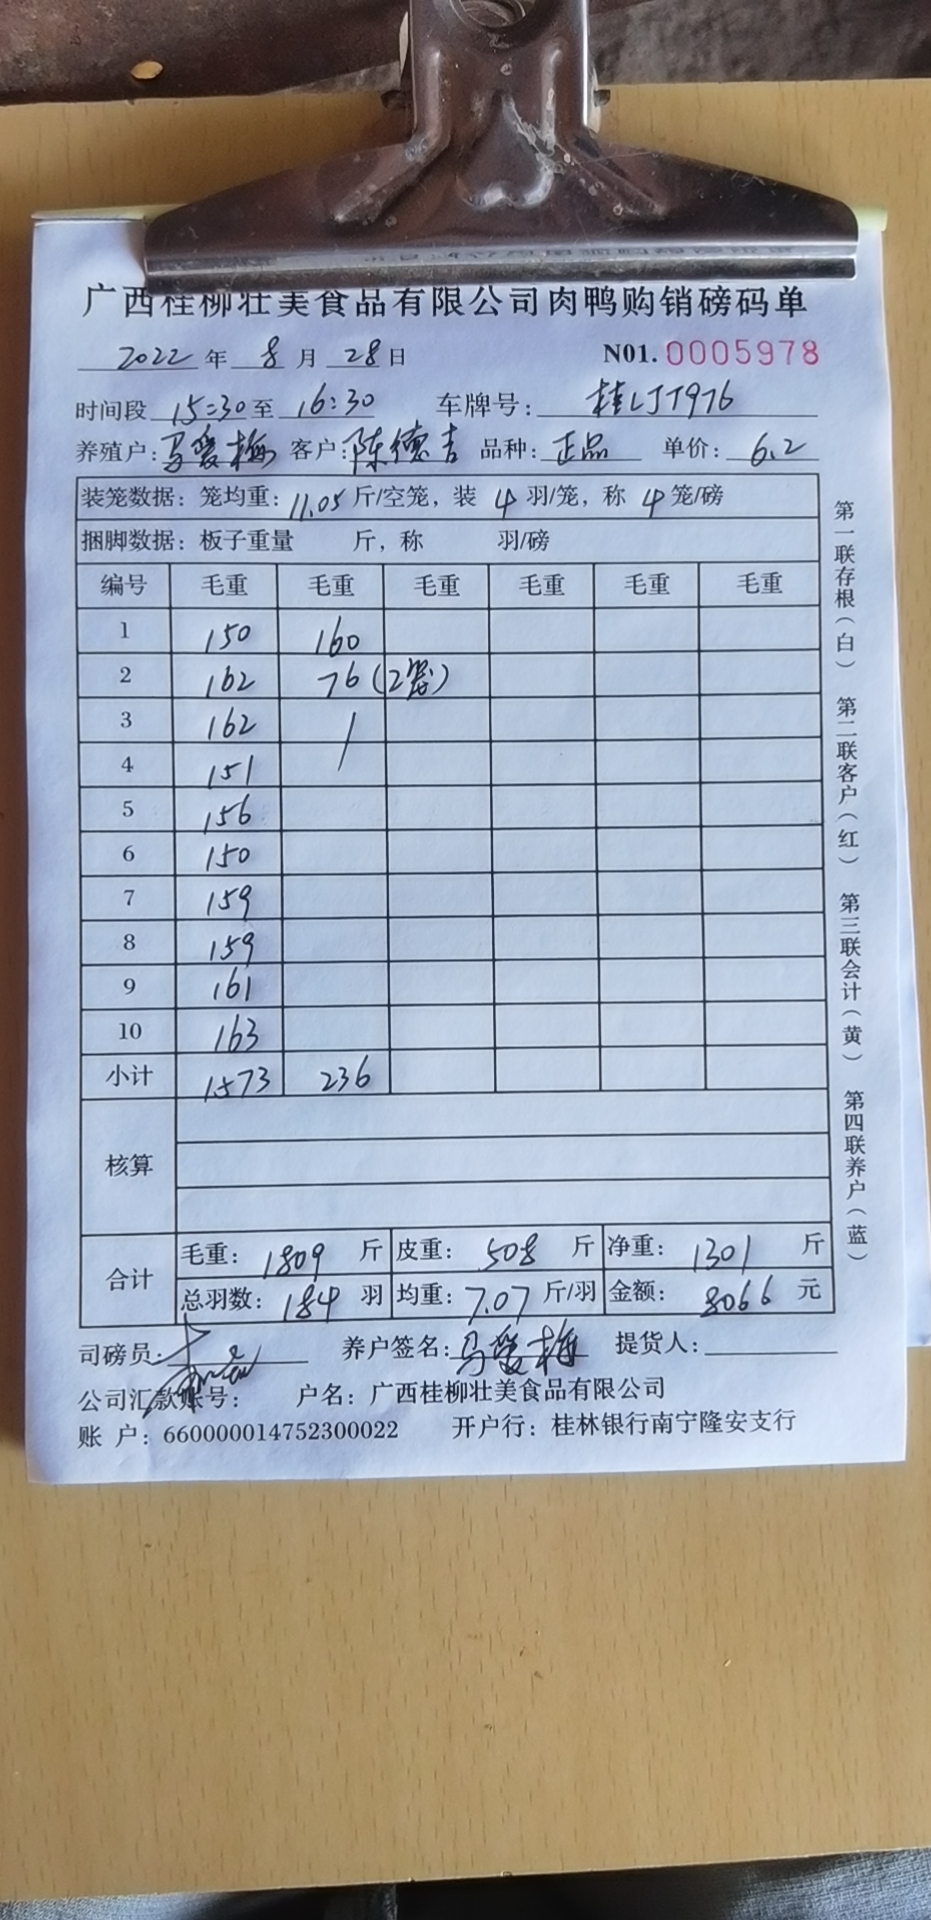 广西桂柳壮美食品有限公司肉鸭购销磅码单
2022 年 8 月 28 日 N01. 0005978
时间段 15:30 至 16:30 车牌号: 桂LJT976
养殖户: 马爱梅 客户: 陈德吉 品种: 正品 单价: 6.2
装笼数据: 笼均重: 11.05 斤/空笼, 装 4 羽/笼, 称 4 笼/磅
捆脚数据: 板子重量 斤, 称 羽/磅
编号 毛重 毛重 毛重 毛重 毛重 毛重
1 150 160
2 162 76 (2笼)
3 162 /
4 151
5 156
6 150
7 159
8 159
9 161
10 163
小计 1573 236
核算
合计 毛重: 1809 斤 皮重: 508 斤 净重: 1301 斤
总羽数: 184 羽 均重: 7.07 斤/羽 金额: 8066 元
司磅员: 养户签名: 马爱梅 提货人:
公司汇款账号: 户名: 广西桂柳壮美食品有限公司
账 户: 660000014752300022 开户行: 桂林银行南宁隆安支行
第一联存根(白) 第二联客户(红) 第三联会计(黄) 第四联养户(蓝)